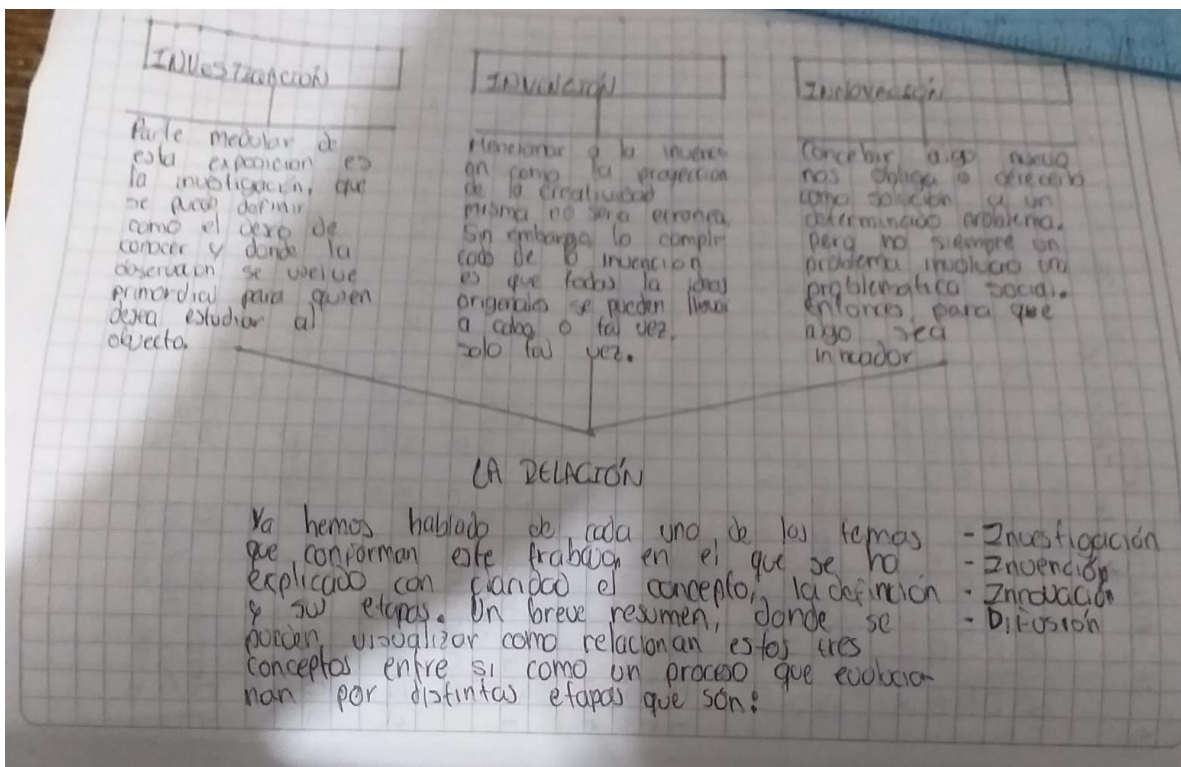 INVESTIGACIÓN
Parte medular de
esta exposicion es
la investigacin, que
se puede definir
como el deseo de
conocer y donde la
observacion se vuelve
primordial para quien
desea estudiar al
objecto.
INVENCIÓN
Mencionar a la invenci
on como la proyeccion
de la creatividad
misma no sera erronea
Sin embargo lo compli
cado de la invencion
es que todas la ideas
originales se pueden llevar
a cabo o tal vez,
solo tal vez.
Innovación
Concebir algo nuevo
nos obliga a
como solución a un
determinado problema.
pero no siempre un
problema involucra una
problematica social.
entonces para que
algo sea
LA RELACIÓN
Ya hemos hablado de cada uno de los temas
que conforman este trabajo, en el que se ha
explicado con claridad el concepto, la definción
y sus etapas. Un breve resumen, donde se
pueden visualizar como relacionan estos tres
conceptos entre si como un proceso que evolucio
nan por distintas etapas que són:
- Investigación
- Invención
- Innovación
- Difusión